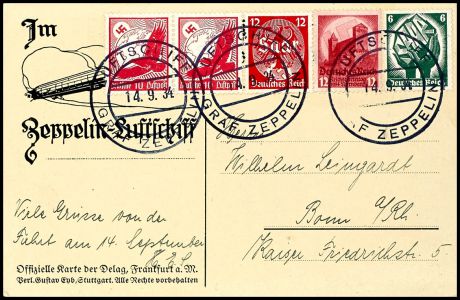 Im
Zeppelin-Luftschiff
Deutsche Luftpost
Deutsche Luftpost
12 Saar 12
Deutsches Reich
12 12
6 6
Deutsches Reich
LUFTSCHIFF
14.9.34
GRAF ZEPPELIN
LUFTSCHIFF
GRAF ZEPPELIN
LUFTSCHIFF
14.9.34
GRAF ZEPPELIN
Wilhelm Leingandt
Bonn a/Rh.
Kaiser Friedrichstr. 5
Viele Grüsse von der
Fahrt am 14. September
Offizielle Karte der Delag, Frankfurt a. M.
Verl. Gustav Eyb, Stuttgart. Alle Rechte vorbehalten